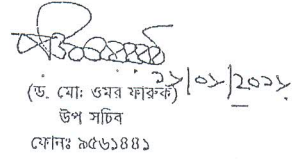 ২১/০১/২০১৯
(ড. মোঃ ওমর ফারুক)
উপ সচিব
ফোনঃ ৯৫৬১৪৪১